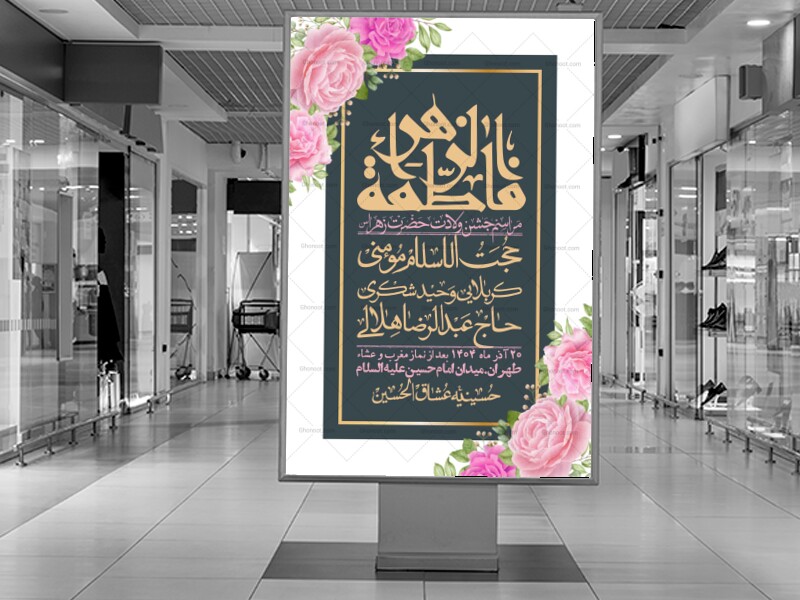 یا فاطمة الزهرا
مراسم جشن ولادت حضرت زهرا(س)
حجت الاسلام مومنی
کربلایی وحید شکری
حاج عبدالرضا هلالی
۲۰ آذر ماه ۱۴۰۴ بعد از نماز مغرب و عشاء
طهران.میدان امام حسین علیه السلام
حسینیه عشاق الحسین